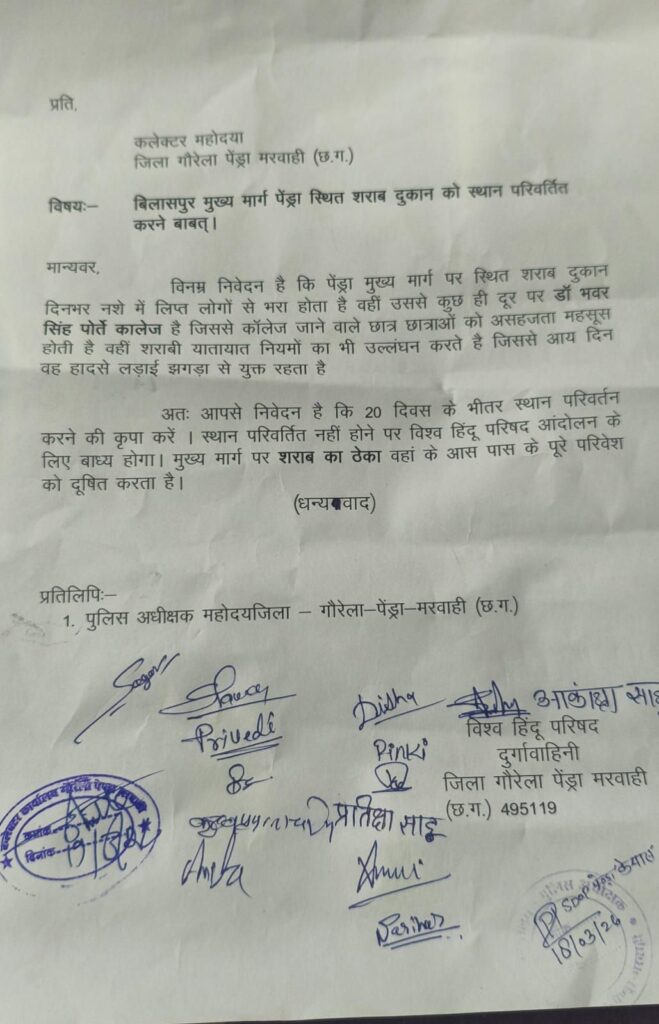 प्रति,
कलेक्टर महोदया
जिला गौरेला पेंड्रा मरवाही (छ.ग.)
विषयः– बिलासपुर मुख्य मार्ग पेंड्रा स्थित शराब दुकान को स्थान परिवर्तित
करने बाबत्।
मान्यवर,
विनम्र निवेदन है कि पेंड्रा मुख्य मार्ग पर स्थित शराब दुकान
दिनभर नशे में लिप्त लोगों से भरा होता है वहीं उससे कुछ ही दूर पर डॉ भवर
सिंह पोर्ते कालेज है जिससे कॉलेज जाने वाले छात्र छात्राओं को असहजता महसूस
होती है वहीं शराबी यातायात नियमों का भी उल्लंघन करते है जिससे आय दिन
वह हादसे लड़ाई झगड़ा से युक्त रहता है
अतः आपसे निवेदन है कि 20 दिवस के भीतर स्थान परिवर्तन
करने की कृपा करें । स्थान परिवर्तित नहीं होने पर विश्व हिंदू परिषद आंदोलन के
लिए बाध्य होगा। मुख्य मार्ग पर शराब का ठेका वहां के आस पास के पूरे परिवेश
को दूषित करता है।
(धन्यवाद)
प्रतिलिपिः–
1. पुलिस अधीक्षक महोदयजिला – गौरेला–पेंड्रा–मरवाही (छ.ग.)
Disha आकांक्षा साहू
विश्व हिंदू परिषद
Privedi
Pinki
दुर्गावाहिनी
जिला गौरेला पेंड्रा मरवाही
प्रतिक्षा साहू
(छ.ग.) 495119
दिनांक
SDOP
18/03/26